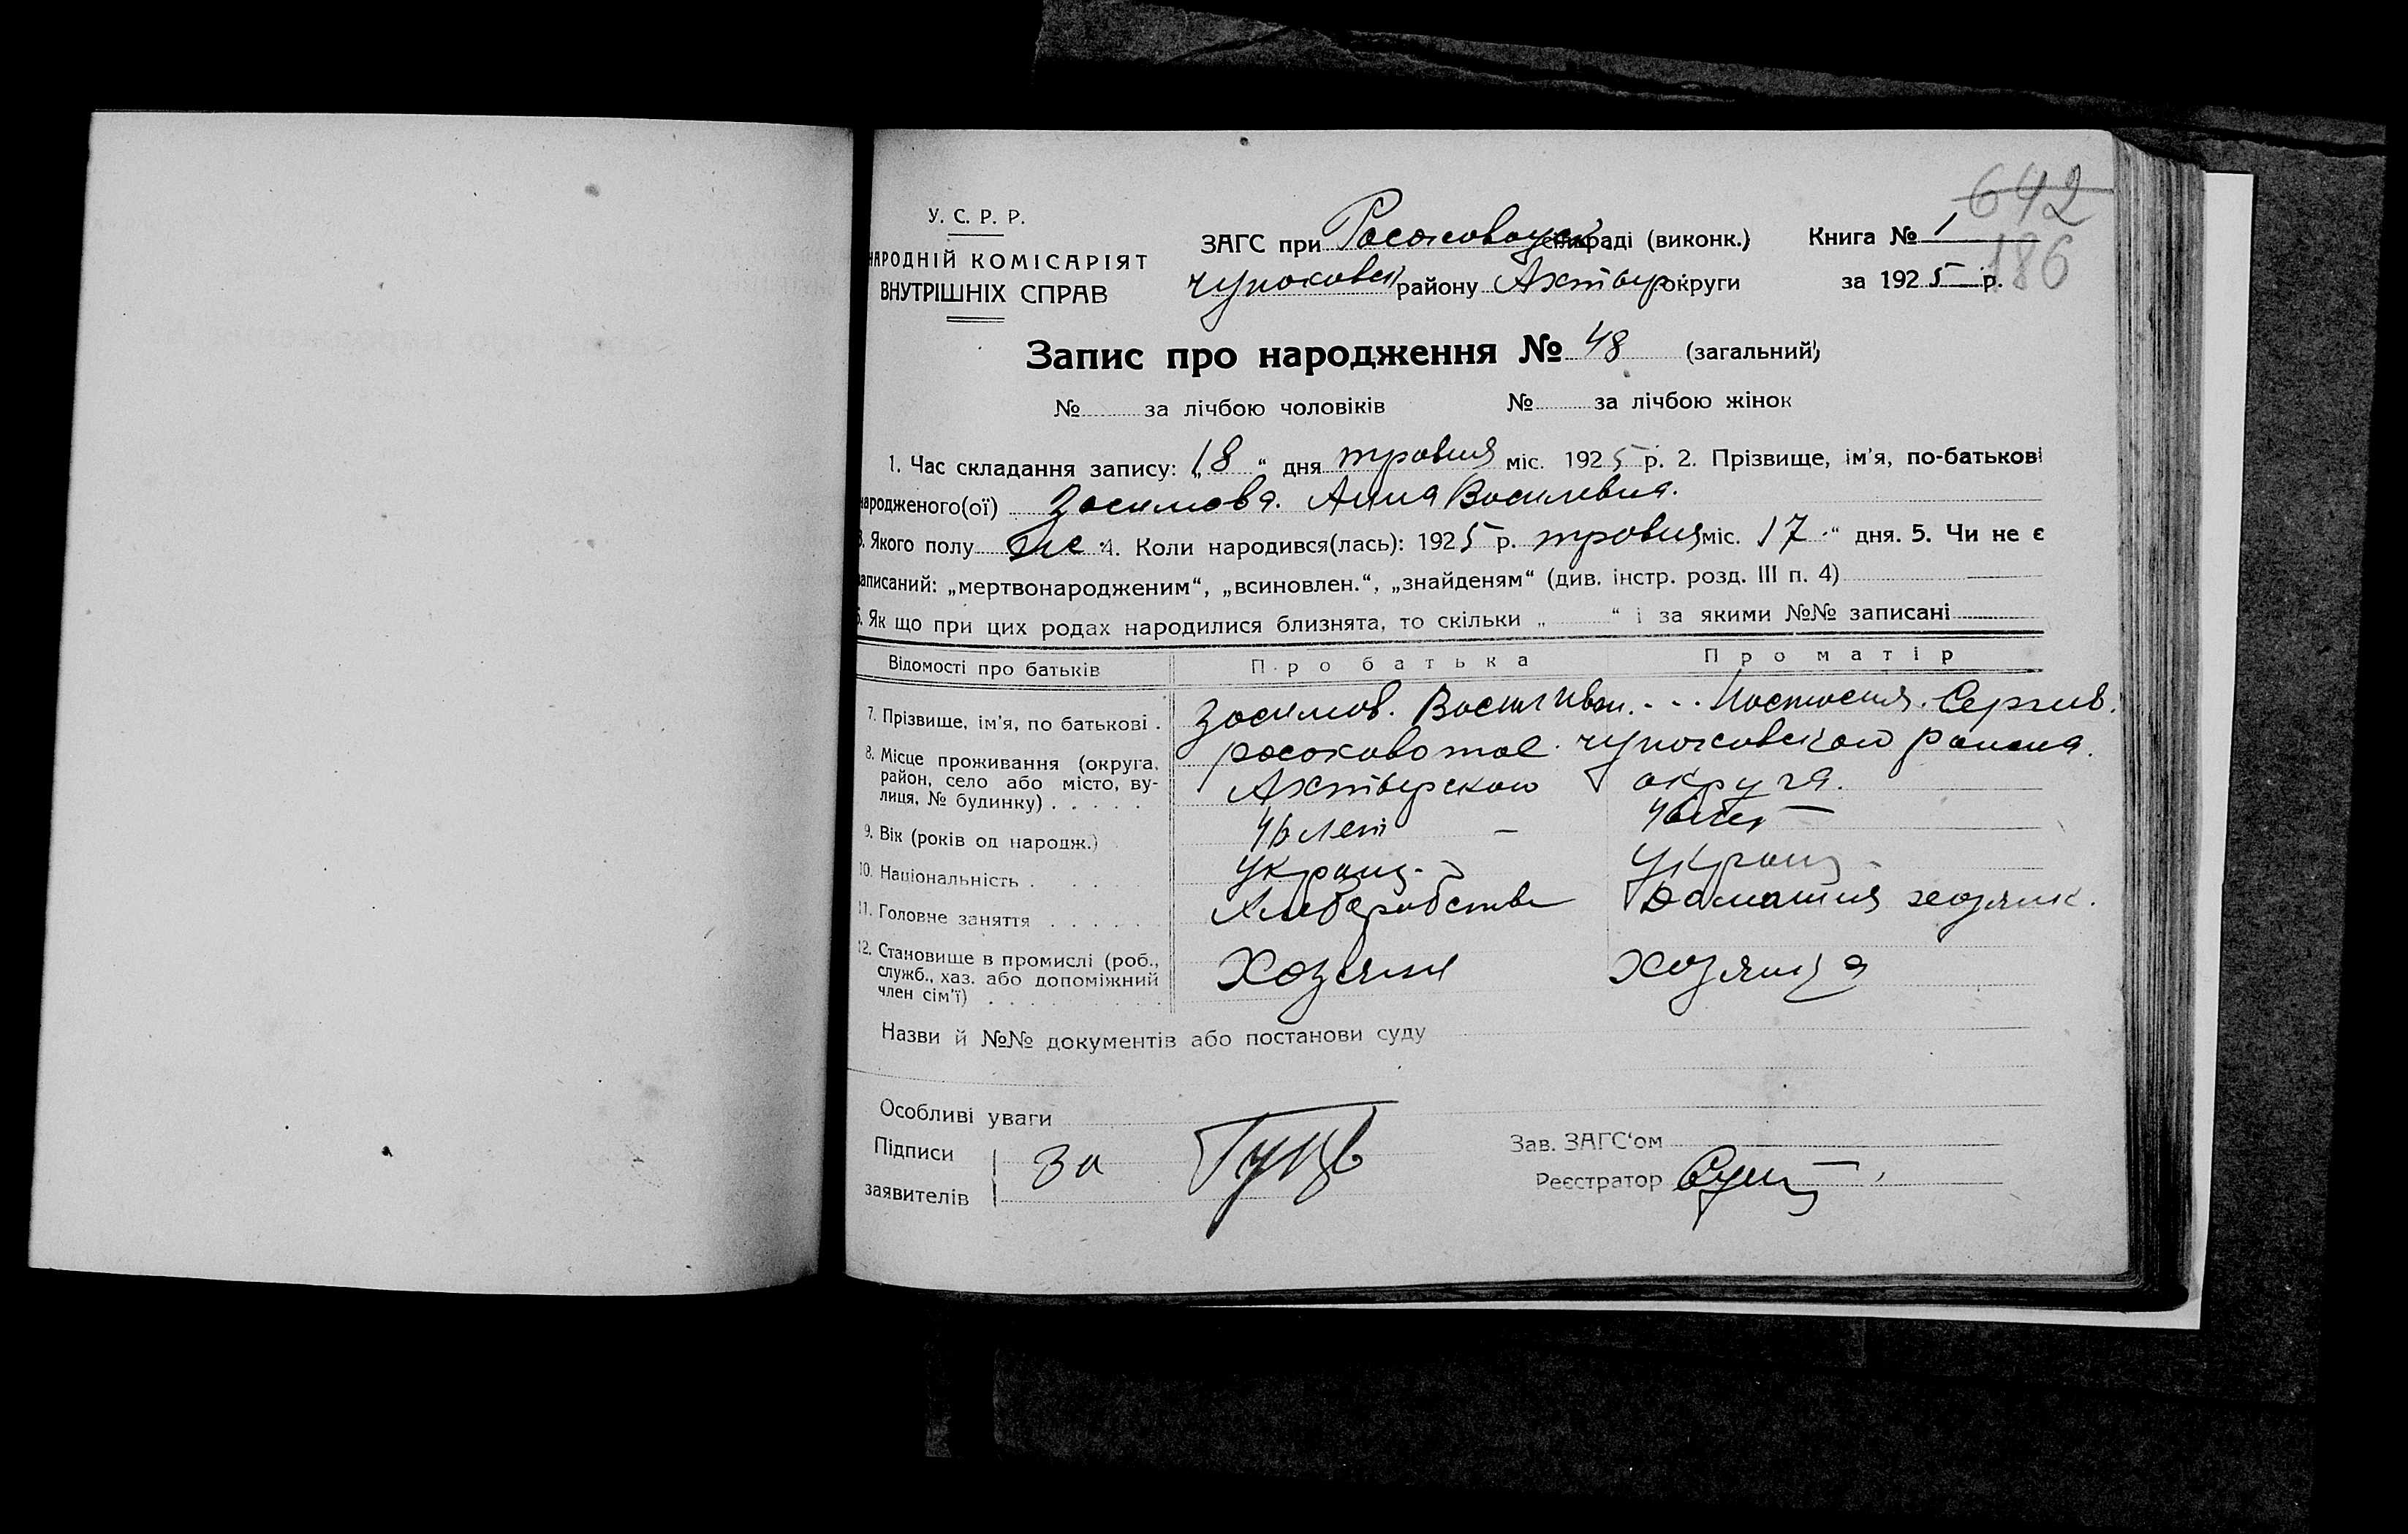 642
186
У. С. Р. Р.
НАРОДНІЙ КОМІСАРІЯТ
ВНУТРІШНІХ СПРАВ
ЗАГС при раді (виконк.) Книга № 1
району Ахтыр округи за 1925 р.
Запис про народження № 48 (загальний)
№ за лічбою чоловіків № за лічбою жінок
1. Час складання запису: „18“ дня травня міс. 1925 р. 2. Прізвище, ім'я, по-батькові
народженого(ої) Засимова. Анна Василевна.
3. Якого полу же 4. Коли народився(лась): 1925 р. травня міс. 17 “ дня. 5. Чи не є
записаний: „мертвонародженим“, „всиновлен.“, „знайденям“ (див. інстр. розд. III п. 4)
6. Як що при цих родах народилися близнята, то скільки „ “ і за якими №№ записані
Відомості про батьків Про батька Про матір
7. Прізвище, ім'я, по батькові . Засимов. Васил Иван. - - . Настасия. Сергив.
8. Місце проживання (округа, район, село або місто, вулиця, № будинку) . . . . . чупаховского района.
Ахтырского округа.
9. Вік (років од народж.) 46 лет – 46 лет –
10. Національність . . . . . украин. украин.
11. Головне заняття . . . . . . Хлеборобство Домашняя хозяик.
12. Становище в промислі (роб., служб., хаз. або допоміжний член сім'ї) . . . . . . . . Хозяин хозяика
Назви й №№ документів або постанови суду
Особливі уваги
Підписи
заявителів За
Зав. ЗАГС'ом
Реєстратор